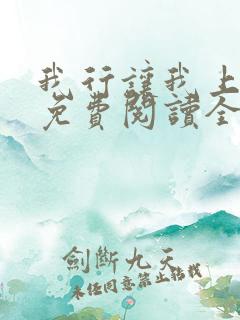 我行讓我上
免費閱讀全
劍斷九天
未经同意禁止转载